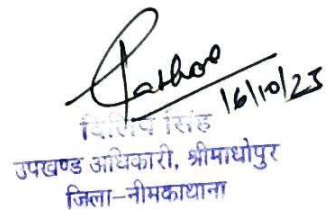 Rathor
16/10/23
दिलीप सिंह
उपखण्ड अधिकारी, श्रीमाधोपुर
जिला-नीमकाथाना